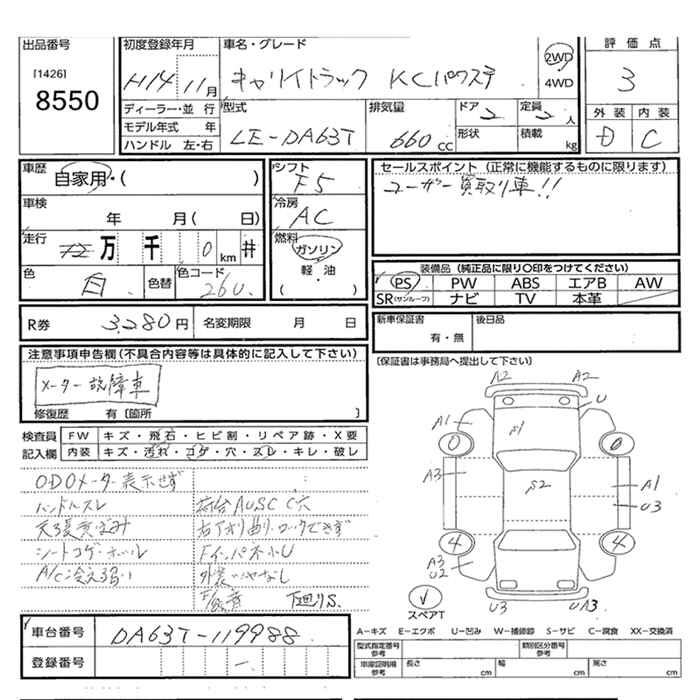 出品番号
[1426]
8550
初度登録年月
H14 11月
車名・グレード
キャリイトラック KCパワステ
2WD
4WD
評価点
3
外装 内装
D C
ディーラー・並行
モデル年式 年
ハンドル 左・右
型式
LE-DA63T
排気量
660 cc
ドア 2
形状
定員 2人
積載 kg
車歴
自家用・( )
車検
年 月( 日)
走行
万 千 0 km #
色
白
色替
色コード
26U
シフト
F5
冷房
AC
燃料
ガソリン
軽・油
( )
セールスポイント(正常に機能するものに限ります)
ユーザー買取り車!!
装備品(純正品に限り〇印をつけてください)
PS PW ABS エアB AW
SR(サンルーフ) ナビ TV 本革
R券 3,280円 名変期限 月 日
新車保証書
有・無
後日品
(保証書は事務局へ提出して下さい)
注意事項申告欄(不具合内容等は具体的に記入して下さい)
メーター故障車
修復歴 有[箇所 ]
検査員
記入欄
FW キズ・飛石・ヒビ割・リペア跡・X要
内装 キズ・汚れ・コゲ・穴・スレ・キレ・破レ
ODOメーター表示せず
ハンドルスレ
荷台AUSC C穴
右アオリ曲り ロックできず
シートコゲ・
A/C冷え弱い
下廻りS
A2 A2
U
A1
A1
0 0
A3
S2
A1
U3
4 4
A3
U2
U3 UA3
スペアT
A-キズ E-エクボ U-凹み W-補修跡 S-サビ C-腐食 XX-交換済
車台番号
DA63T-119988
登録番号
-
型式指定番号
参考
類別区分番号
参考
車庫証明用
参考
長さ cm
幅 cm
高さ cm